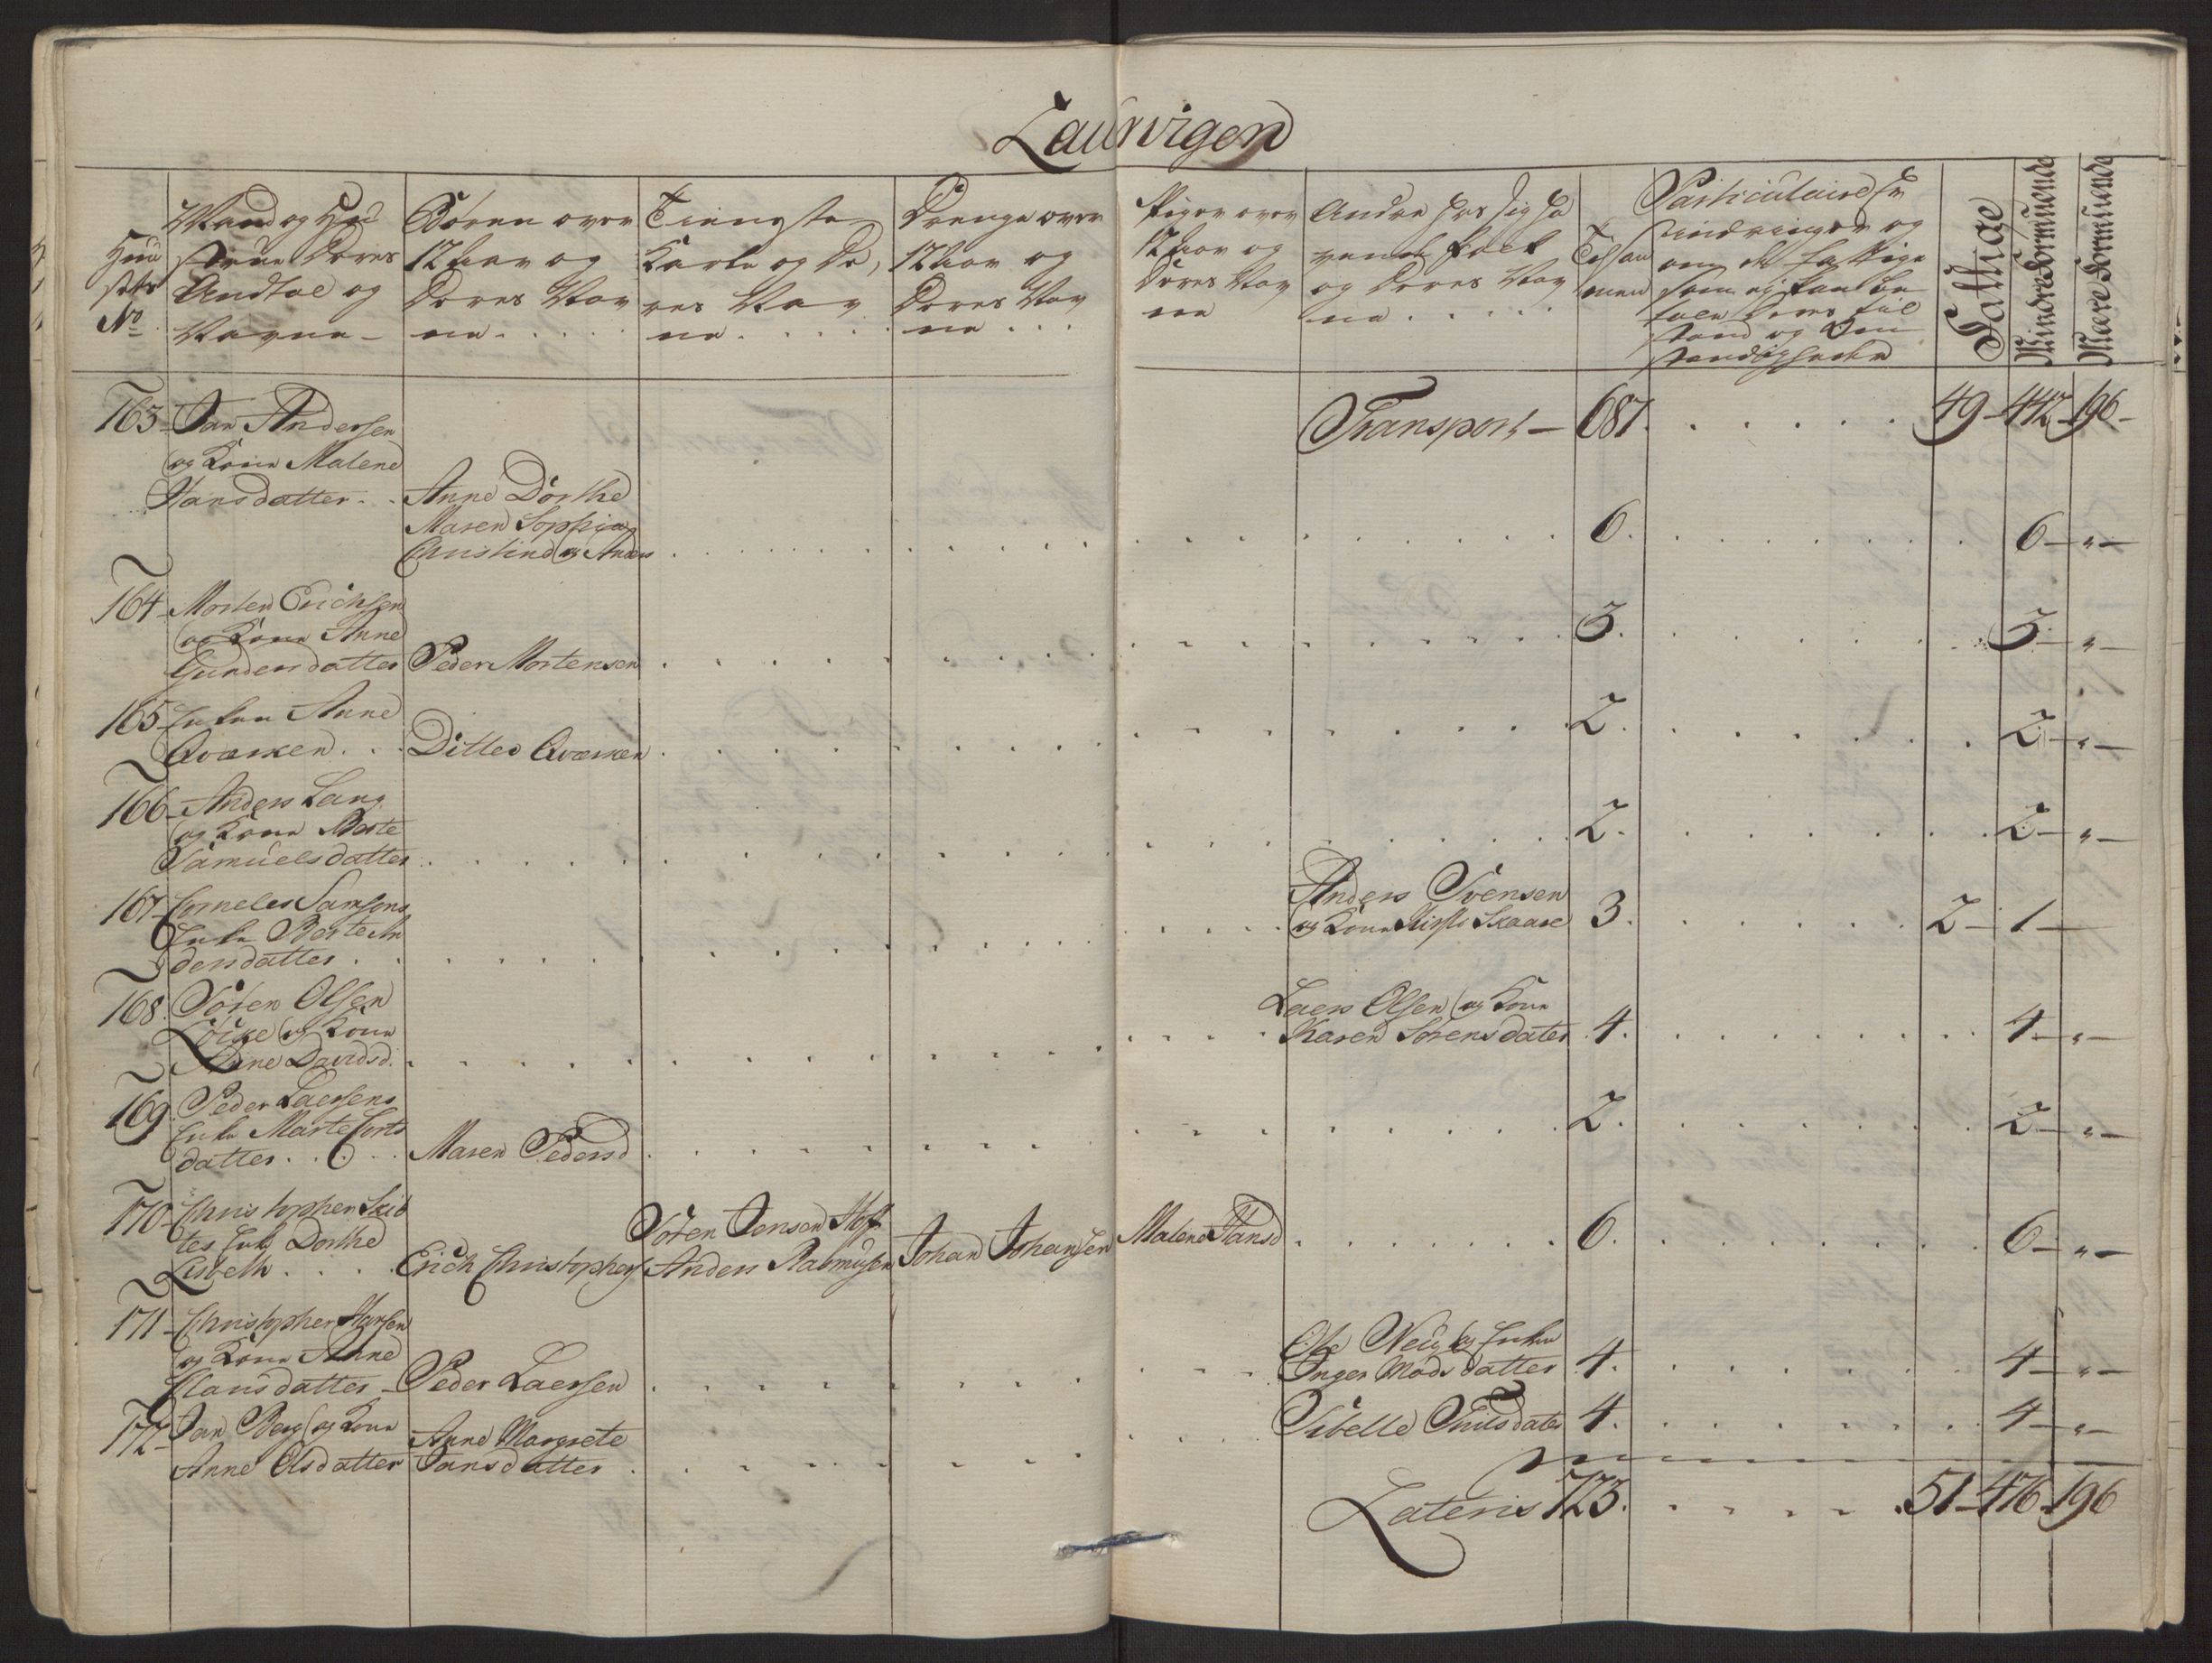 Laurvigen
Huu
sets
No
Mand og Hu
strue Deres
Andtal og
Navne
Børen over
12 aar og
Deres Nav
ne
Tieneste
Karle og De
res Nav
ne
Drenge over
12 aar og
Deres Nav
ne
Piger over
12 aar og
Deres Nav
ne
Andre hos sig ha
vende folk
og Deres Nav
ne
Tilsam
men
Particulaire Er
indringer og
om de fattige
som ej kan be
tale Deres til
stand og Om
stændigheder
Fattige
Mindre Formuende
Mære Formuende
Transport 687 49 442 196
163 Jan Andersen
og Kone Malene
Hansdatter Anne Dorthe
Maren Sophia
Christine og Anders 6 6 "
164 Morten Erichsen
og Kone Anne
Gundersdatter Peder Mortensen 3 3 "
165 Enken Anne
Qværken Ditleo Qværken 2 2 "
166 Anders Lang
og Kone Berte
Samuelsdatter 2 2 "
167 Corneles Samsons
Enke Berte An
dersdatter Anders Svensen
og Kone Kirsti Skaare 3 2 1
168 Soren Olsen
Løcke og Kone
Anne Davidsd. Laers Olsen og Kone
Karen Sørensdater 4 4 "
169 Peder Laersens
Enke Marte Corts
datter Maren Pedersd 2 2 "
170 Christopher Skib
tes Enke Dorthe
Lisbeth Erich Christophers Soren Jensen Hoff
Anders Rasmusen Johan Johansen Malene Hansd 6 6 "
171 Christopher Hansen
og Kone Anne
Clausdatter Peder Laersen Ole Neu og Enken
Inger Madsdatter 4 4 "
172 Jan Berg og Kone
Anne Olsdatter Anne Margrete
Jansdatter Sibelle Truilsdater 4 4 "
Lateris 723 51 476 196